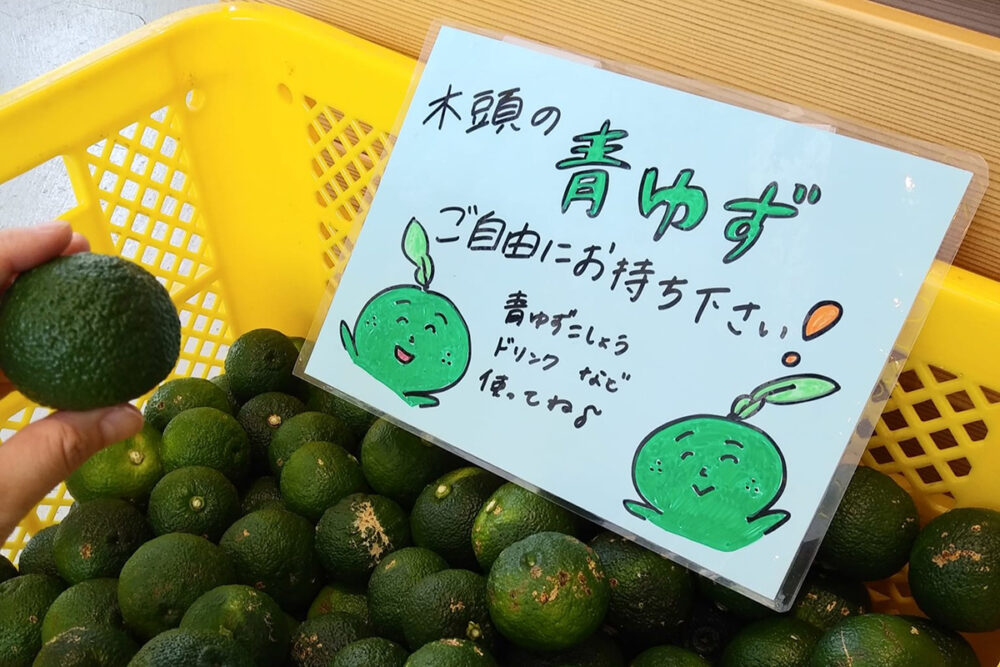 木頭の
青ゆず
ご自由にお持ち下さい!
青ゆずこしょう
ドリンク など
使ってね♪